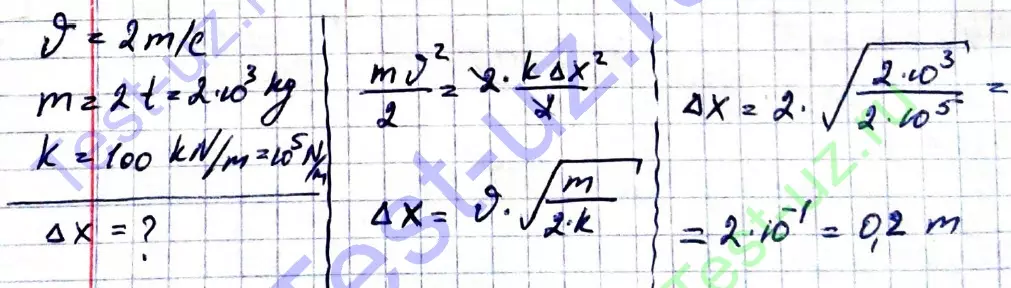 ϑ = 2 m/c
m = 2 t = 2·10³ kg
k = 100 kN/m = 10⁵ N/m
Δx = ?
mϑ²/2 = 2· kΔx²/2
Δx = ϑ·√(m/2·k)
Δx = 2·√(2·10³/2·10⁵) =
= 2·10⁻¹ = 0,2 m
Test-uz.ru
Test-uz.ru
Test-uz.ru